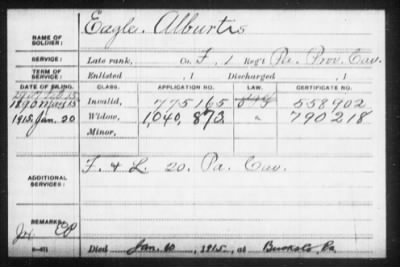 Eagle, Alburtis
NAME OF SOLDIER:
SERVICE: Late rank, Co. F, 1 Reg't Pa. Prov. Cav.
TERM OF SERVICE: Enlisted , 1 Discharged , 1
DATE OF FILING. CLASS. APPLICATION NO. LAW. CERTIFICATE NO.
1890 Invalid, 775165 558902
1915, Jan. 20 Widow, 1,040,873 " 790218
Minor,
F. & L. 20. Pa. Cav.
ADDITIONAL SERVICES:
REMARKS:
Died Jan. 10, 1915, at Pa.